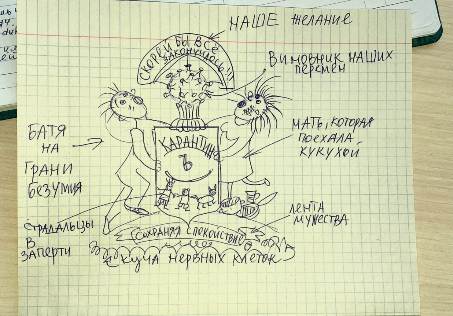 НАШЕ желание
СКОРЕЙ БЫ ВСЁ
ЗАКОНЧИЛОСЬ!!!
ВИНОВНИК НАШИХ
ПЕРЕМЕН
БАТЯ
НА
ГРАНИ
БЕЗУМИЯ
КАРАНТИН
Ъ
МАТЬ, КОТОРАЯ
ПОЕХАЛА
КУКУХОЙ
СТРАДАЛЬЦЫ
В
ЗАПЕРТИ
ЛЕНТА
МУЖЕСТВА
СОХРАНЯЯ СПОКОЙСТВИЕ
КУЧА НЕРВНЫХ КЛЕТОК